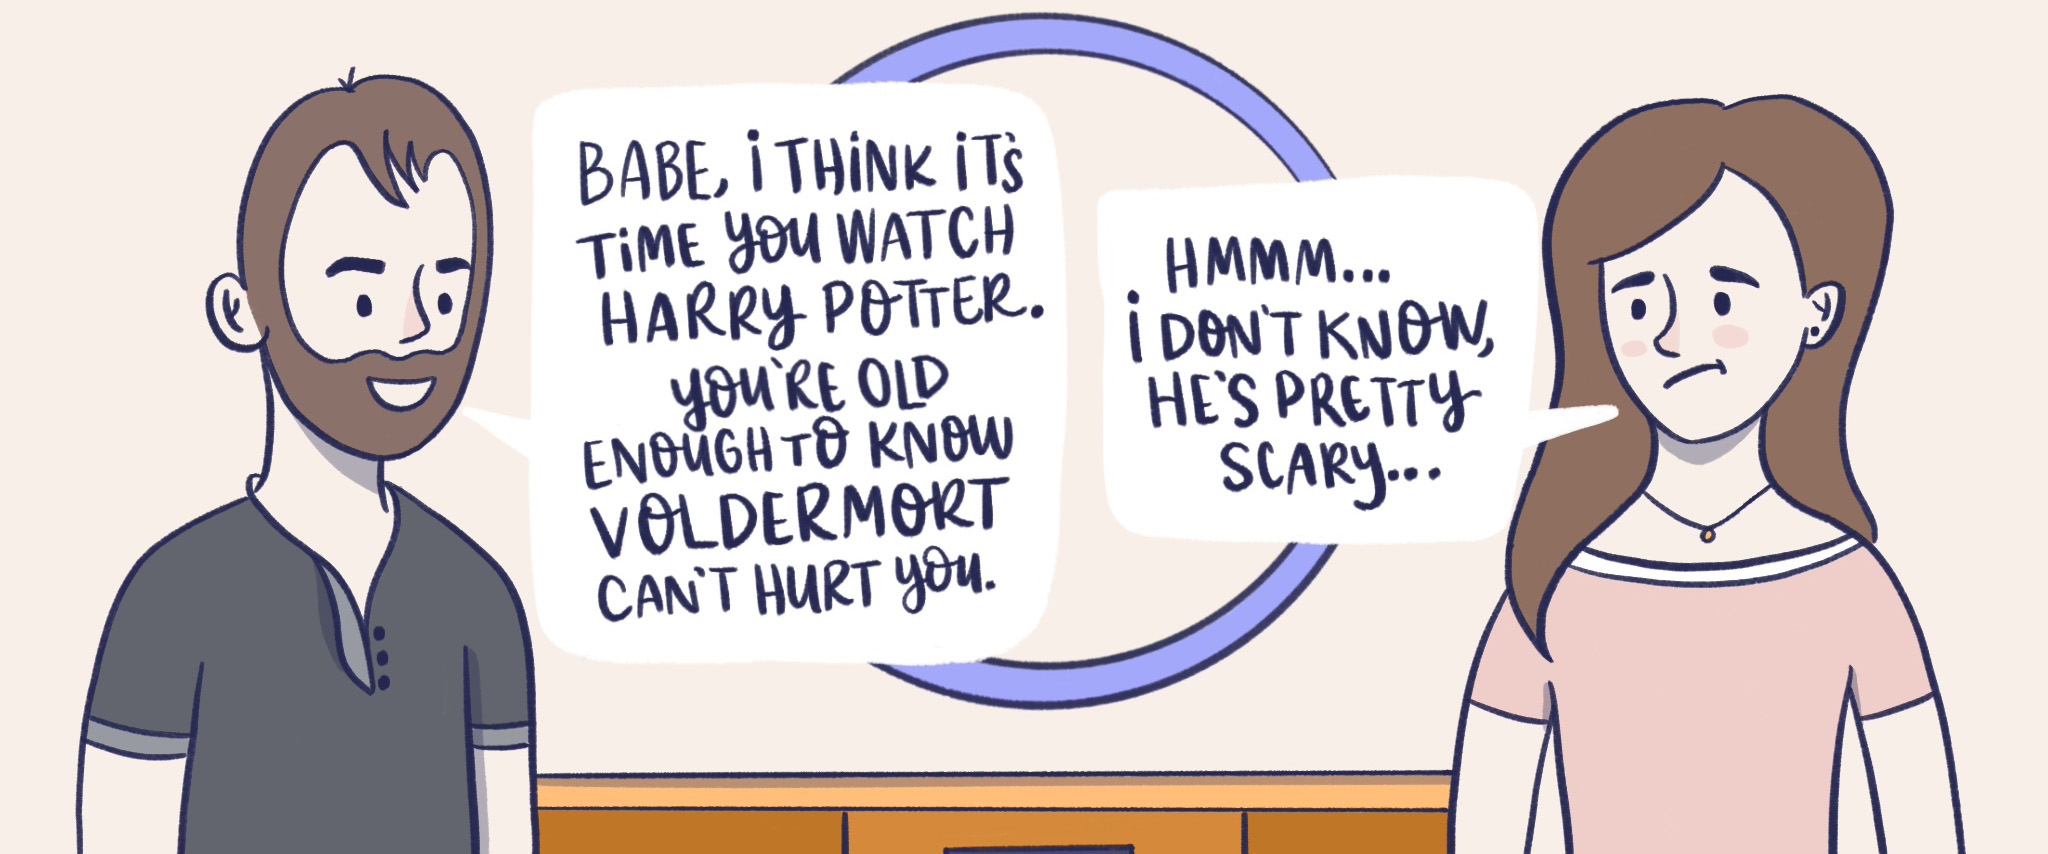 BABE, i THiNK iT's
TiME YOU WATCH
HARRY POTTER.
YOU'RE OLD
ENOUGH TO KNOW
VOLDERMORT
CAN'T HURT YOU.
HMMM...
i DON'T KNOW,
HE'S PRETTY
SCARY...